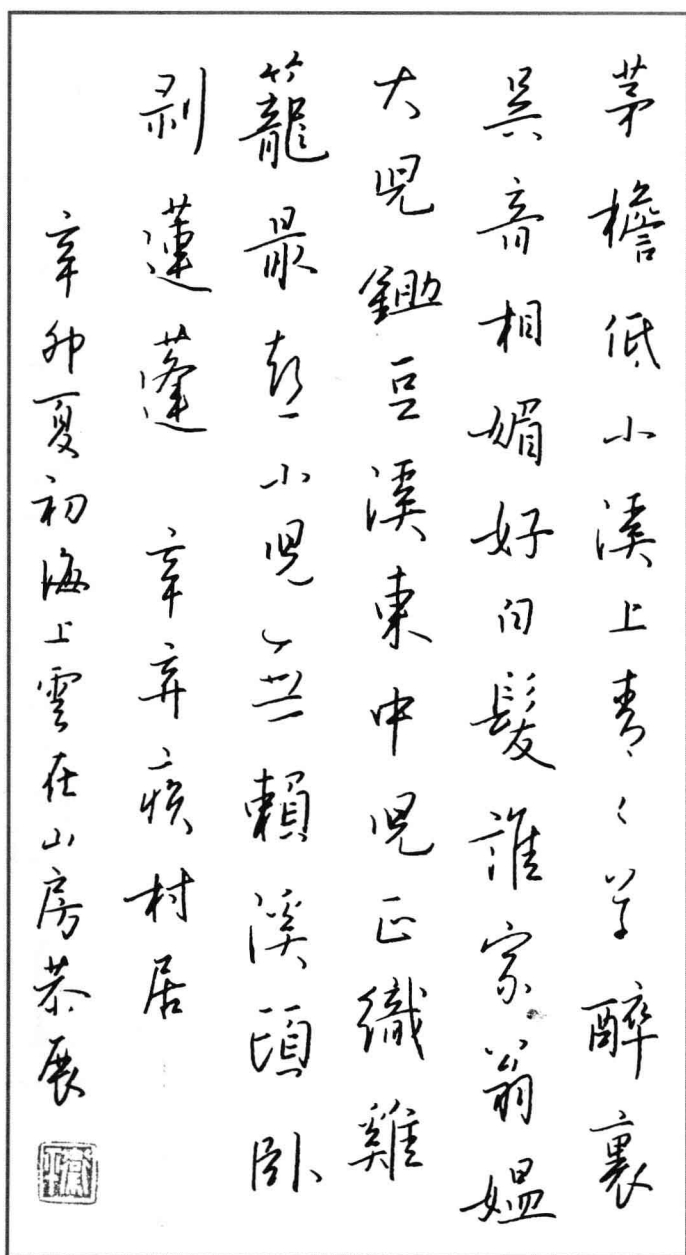 茅檐低小溪上青〻草醉裏
吳音相媚好白髮誰家翁媼
大兒鋤豆溪東中兒正織雞
籠最憝小兒亡無賴溪頭臥
剥蓮蓬 辛弃疾村居
辛卯夏初海上雲在山房恭展